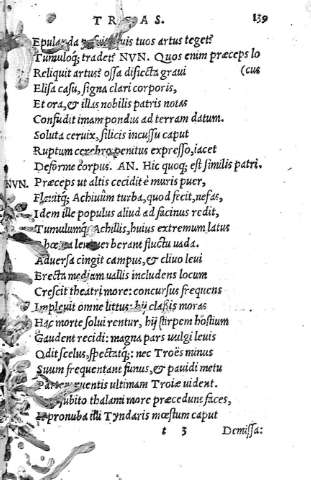 TROAS. 139
Epulanda quis tuos artus teget?
Tumuloq; tradet? NVN. Quos enim præceps lo
Reliquit artus? ossa disiecta graui (cus
Elisa casu, signa clari corporis,
Et ora, & illas nobilis patris notas
Confudit imam pondus ad terram datum.
Soluta ceruix, silicis incussu caput
Ruptum cerebro penitus expresso, iacet
Deforme corpus. AN. Hic quoq; est similis patri.
NVN. Præceps ut altis cecidit è muris puer,
Fleuitq; Achiuûm turba, quod fecit, nefas,
Idem ille populus aliud ad facinus redit,
Tumulumq; Achillis, huius extremum latus
leni uerberant fluctu uada.
Aduersa cingit campus, & cliuo leui
Erecta mediam uallis includens locum
Crescit theatri more: concursus frequens
Impleuit omne littus: hij classis moras
Hac morte solui rentur, hij stirpem hostium
Gaudent recidi: magna pars uulgi leuis
Odit scelus, spectatq;: nec Troës minus
Suum frequentant funus, & pauidi metu
Partem ruentis ultimam Troiæ uident.
subito thalami more præcedunt faces,
pronuba illi Tyndaris mœstum caput
t 3 Demissa: